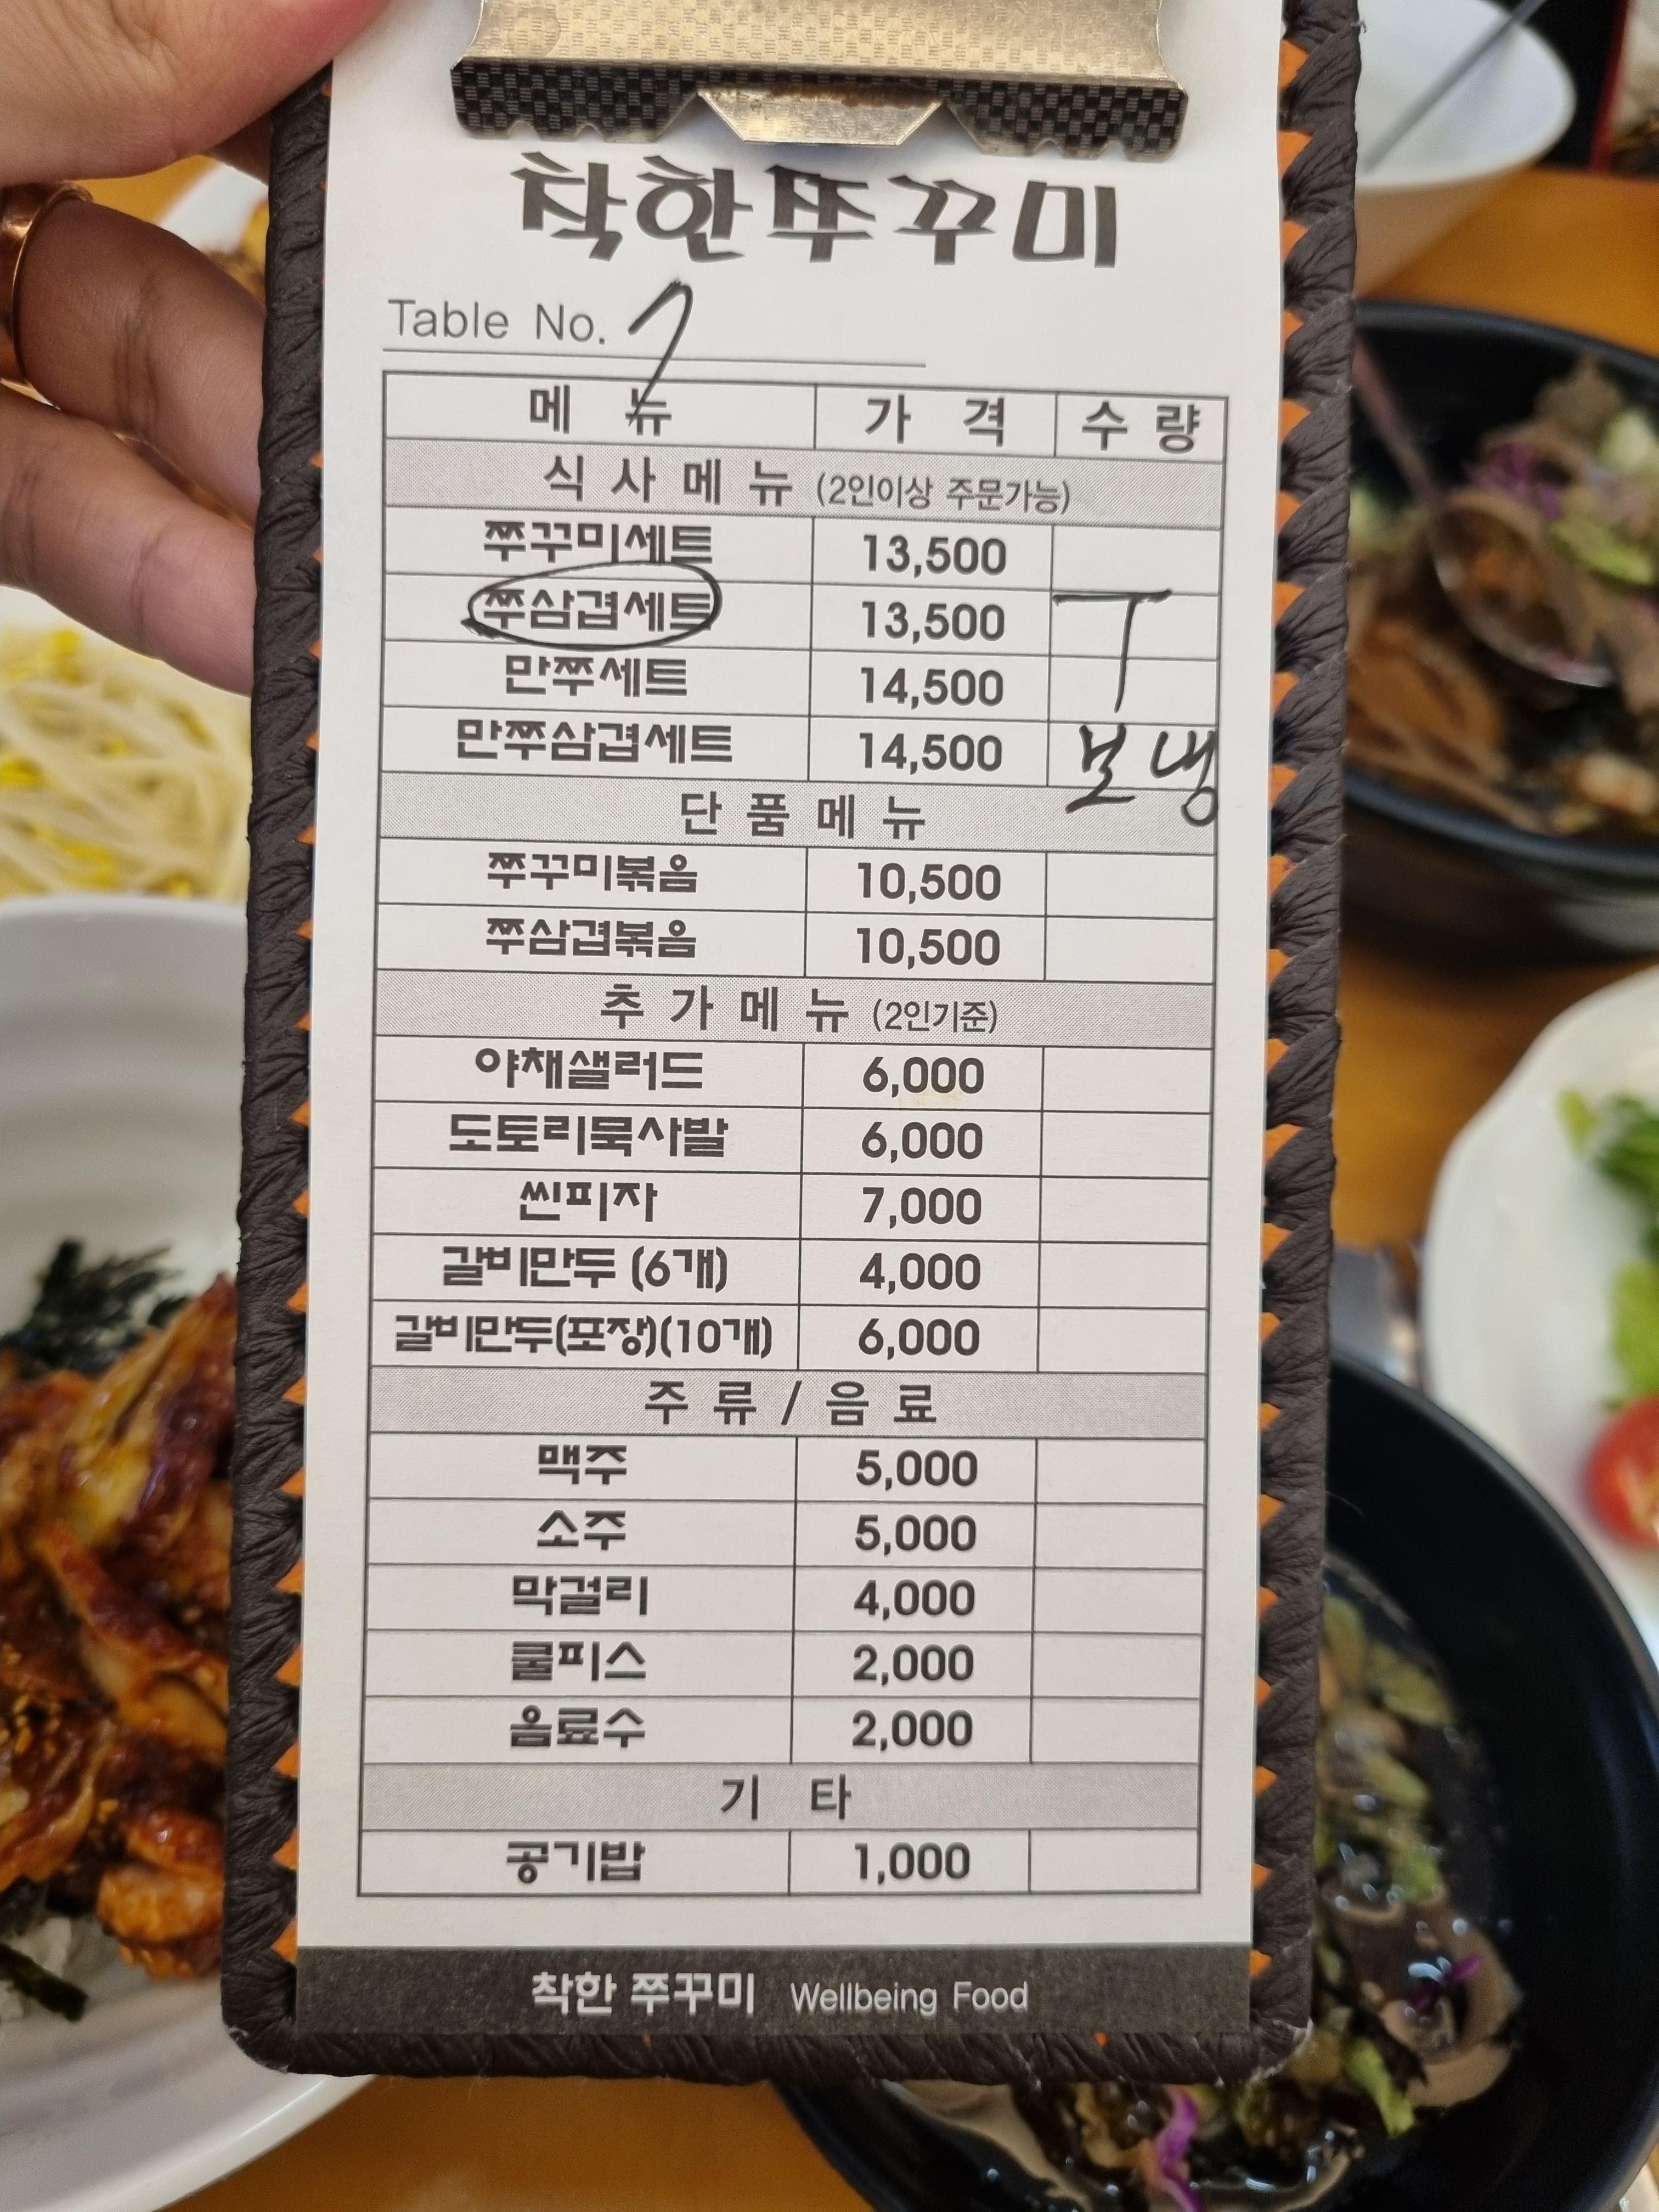 착한쭈꾸미
Table No. 7
메 뉴 가 격 수 량
식 사 메 뉴 (2인이상 주문가능)
쭈꾸미세트 13,500
쭈삼겹세트 13,500 ㅜ
만쭈세트 14,500
만쭈삼겹세트 14,500 보냉
단 품 메 뉴
쭈꾸미볶음 10,500
쭈삼겹볶음 10,500
추 가 메 뉴 (2인기준)
야채샐러드 6,000
도토리묵사발 6,000
씬피자 7,000
갈비만두 (6개) 4,000
갈비만두(포장)(10개) 6,000
주 류 / 음 료
맥주 5,000
소주 5,000
막걸리 4,000
쿨피스 2,000
음료수 2,000
기 타
공기밥 1,000
착한 쭈꾸미 Wellbeing Food